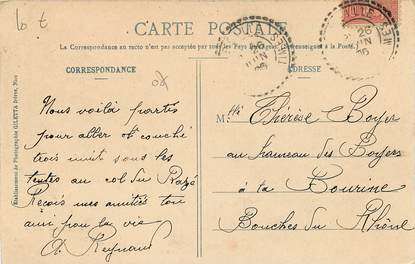 lo t
CARTE POSTALE
La Correspondance au recto n'est pas acceptée par tous les Pays renseignements à la Poste.
CORRESPONDANCE
Nous voilà partis
pour aller et couché
trois nuit sous les
tentes au col du
Reçois mes amitiés ton
ami pour la vie
A. Reynaud
ADRESSE
26
JUIN
26
JUIN
Mlle Thérèse Boyer
au hameau des Boyers
à la Bourine
Bouches du Rhône
Etablissement de Photographie GILETTA frères, Nice